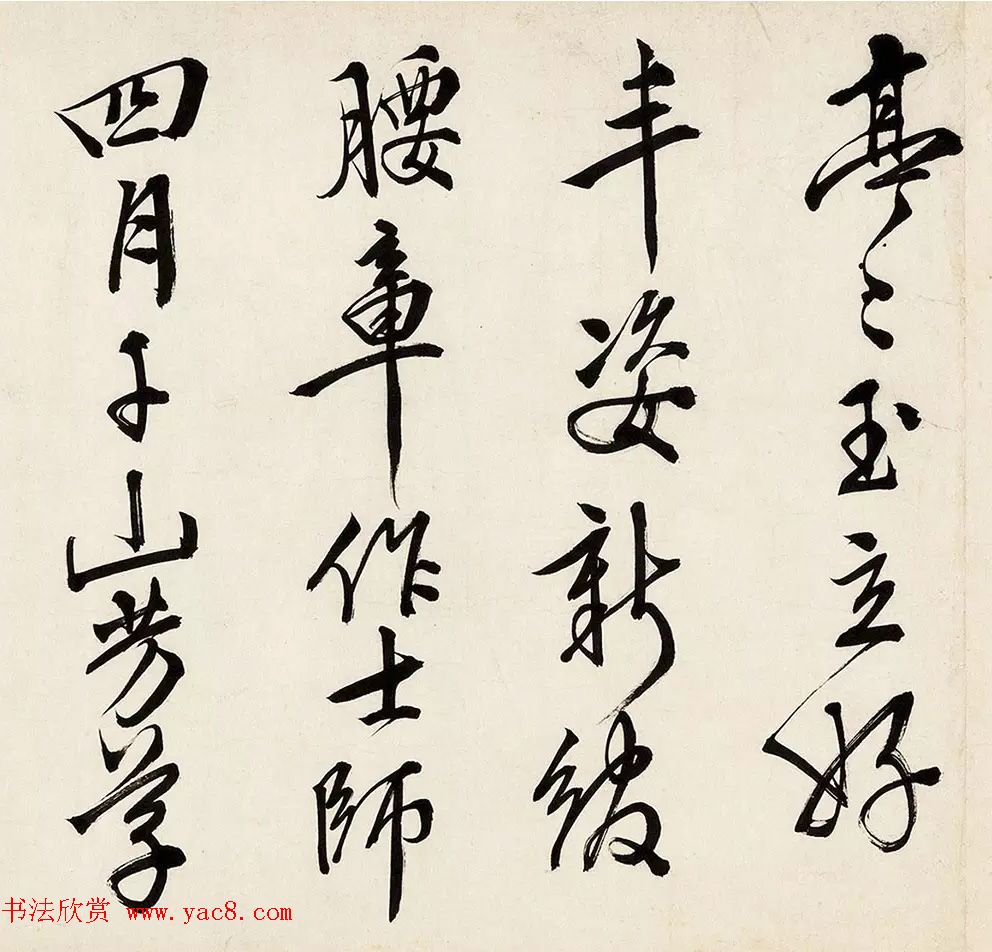 亭〻玉立好
丰姿新綬
腰章作士師
四月千山芳草
书法欣赏 www.yac8.com